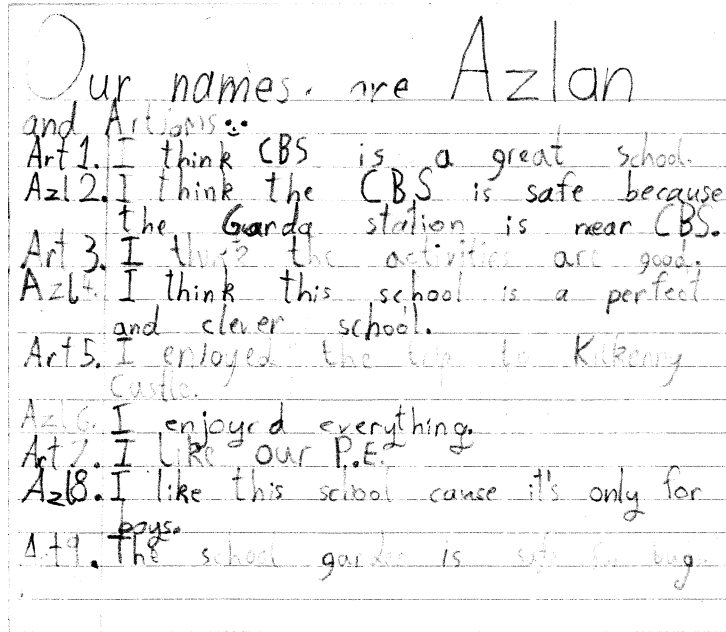 Our names. are Azlan
and Artioms
Art 1. I think CBS is a great school.
Azl 2. I think the CBS is safe because
the Garda station is near CBS.
Art 3. I think the activities are good.
Azl 4. I think this school is a perfect
and clever school.
Art 5. I enjoyed the trip to Kilkenny
Castle.
Azl 6. I enjoyed everything.
Art 7. I like our P.E.
Azl 8. I like this school cause it's only for
boys.
Art 9. The school garden is safe for bug